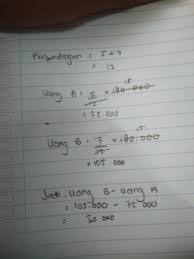 Perbandingan = 5 + 7
= 12
Uang A = 5/12 × 180.000 15
= 75.000
Uang B = 7/12 × 180.000 15
= 105.000
Jadi, Uang B - Uang A
= 105.000 - 75.000
= 30.000